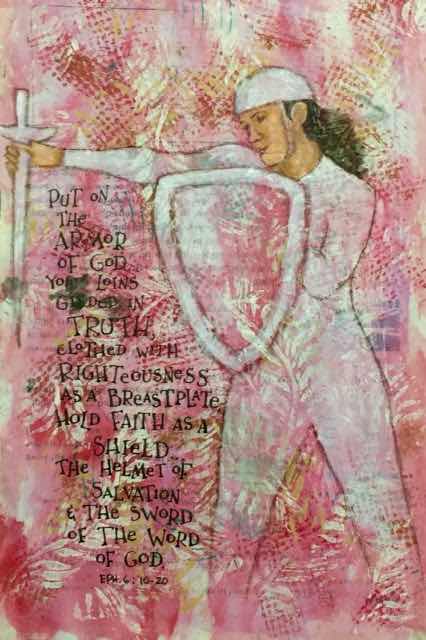 PUT ON
THE
ARMOR
OF GOD
YOUR LOINS
GIRDED IN
TRUTH,
CLOTHED WITH
RIGHTEOUSNESS
AS A BREASTPLATE,
HOLD FAITH AS A
SHIELD..
THE HELMET OF
SALVATION
& THE SWORD
OF THE WORD
OF GOD
EPH. 6: 10-20